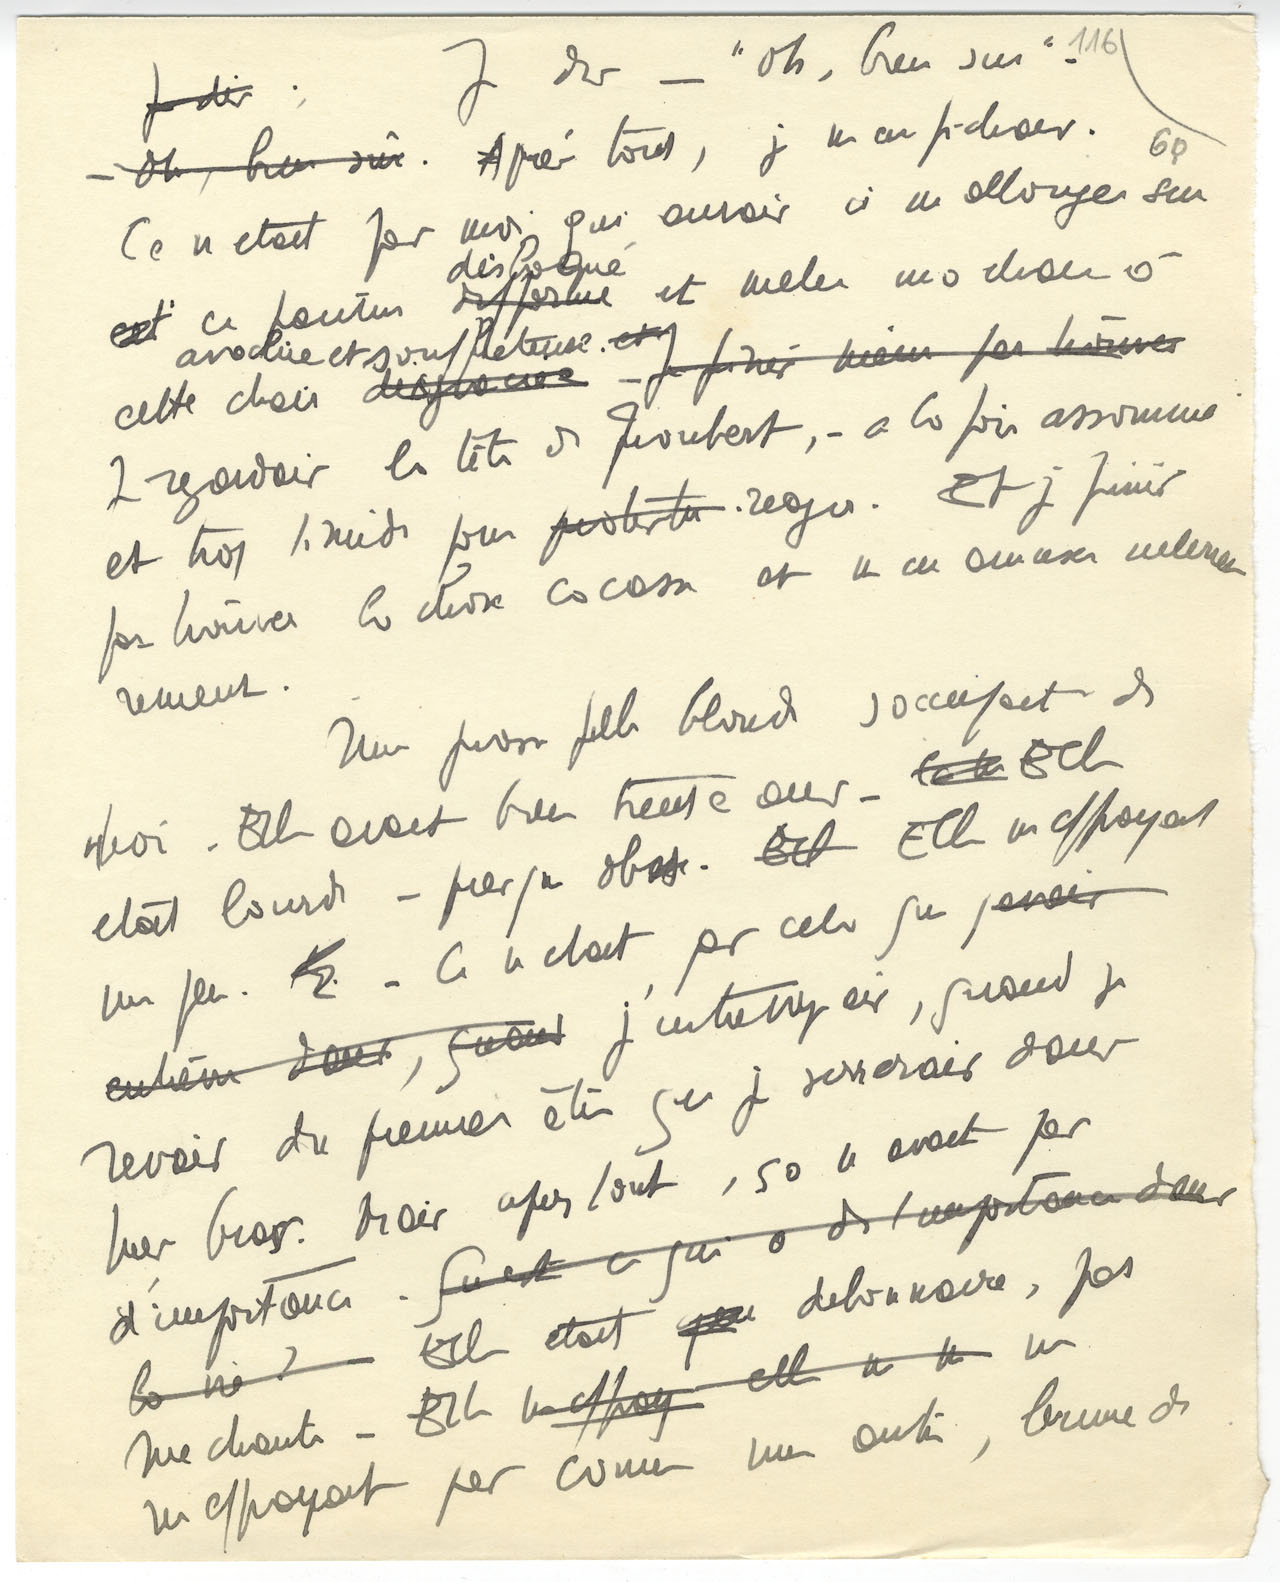 116
Je dis : Je dis — "oh, bien sur" -
60
- oh, bien sûr. Après tout, je m'en fichais.
Ce n'etait pas moi qui aurais à m'allonger sur
disloqué
est ce pantin difforme et meler ma chair à
avachie et souffreteuse. et
cette chair disgraciée - Je finis meme par trouver
Je regardais la tête de Joubert, - a la fois assommé
et trop timide pour protester reagir. Et je finis
par trouver la chose cocasse et m'en amuser interieu
rement.
Une grosse fille blonde s'occupait de
moi. Elle avait bien trente ans - Elle
etait lourde - presque obese. Elle Elle m'effrayait
un peu. - Ce n'etait pas cela que j'avais
entrevu dans, quand j'entrevoyais, quand je
revais du premier être que je serrerais dans
mes bras. Mais apres tout, ça n'avait pas
d'importance. Qu'est ce qui a de l'importance dans
la vie ? Elle etait debonnaire, pas
mechante - Elle m'effray elle ne me
m'effrayait pas comme une autre, brune de